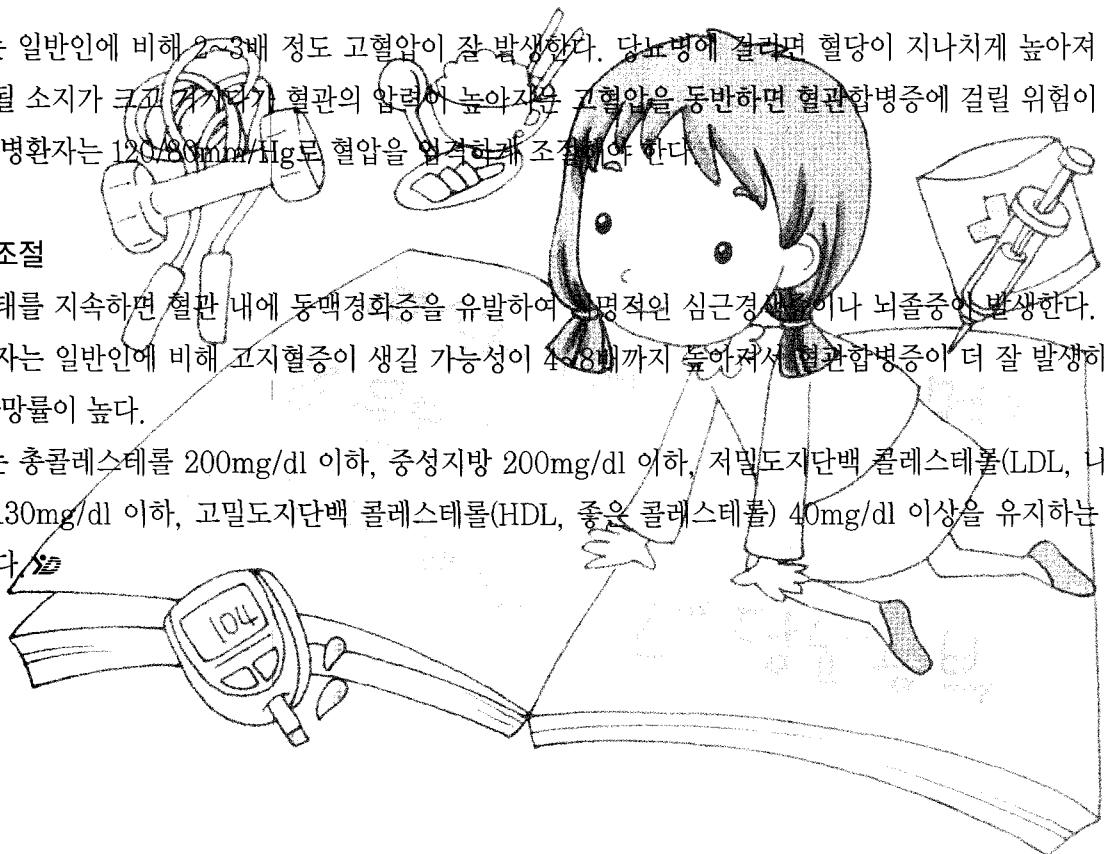 는 일반인에 비해 2~3배 정도 고혈압이 잘 발생한다. 당뇨병에 걸리면 혈당이 지나치게 높아져
될 소지가 크고 거기다가 혈관의 압력이 높아지는 고혈압을 동반하면 혈관합병증에 걸릴 위험이
병환자는 120/80mm/Hg로 혈압을 엄격하게 조절해야 한다.
조절
태를 지속하면 혈관 내에 동맥경화증을 유발하여 치명적인 심근경색증이나 뇌졸중이 발생한다.
자는 일반인에 비해 고지혈증이 생길 가능성이 4~8배까지 높아져서 혈관합병증이 더 잘 발생하
망률이 높다.
는 총콜레스테롤 200mg/dl 이하, 중성지방 200mg/dl 이하, 저밀도지단백 콜레스테롤(LDL, 나
130mg/dl 이하, 고밀도지단백 콜레스테롤(HDL, 좋은 콜레스테롤) 40mg/dl 이상을 유지하는
다.
104